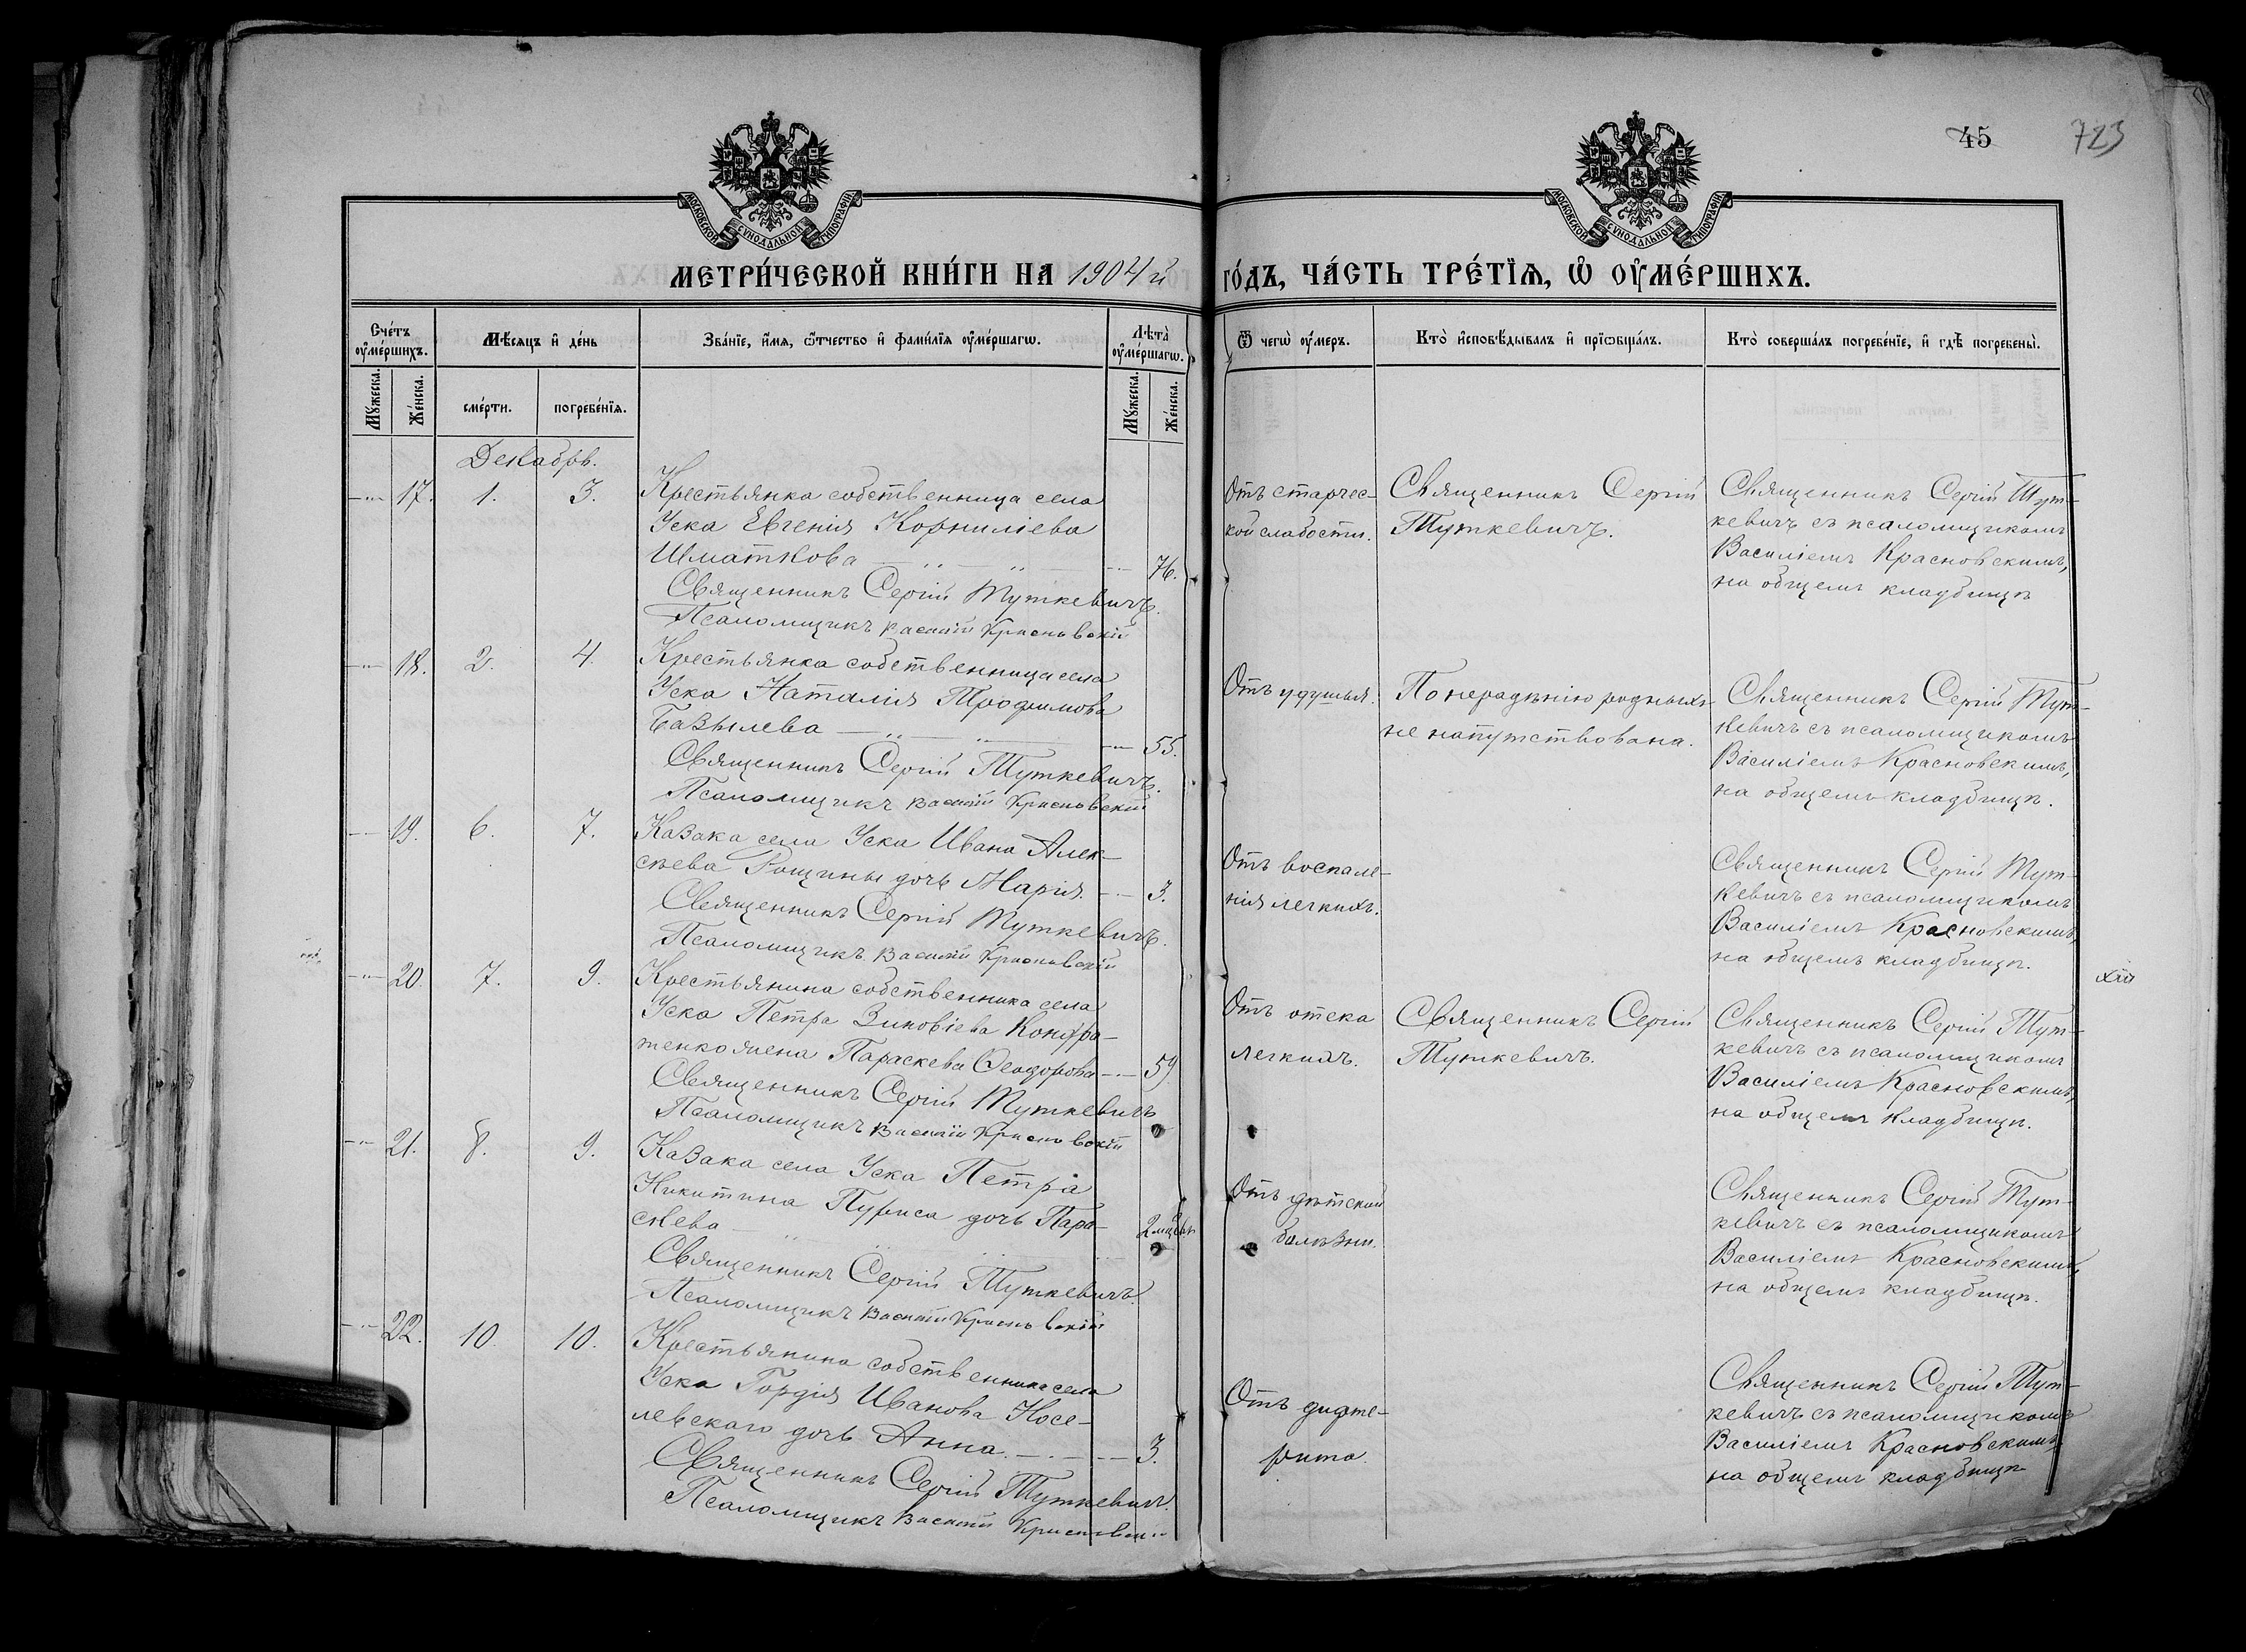 45 723
МОСКОВСКОЙ СѴНОДАЛЬНОЙ ТИПОГРАФІИ
МОСКОВСКОЙ СѴНОДАЛЬНОЙ ТИПОГРАФІИ
МЕТРИ́ЧЕСКОЙ КНИ́ГИ НА 1904 й го́дъ, ЧА́СТЬ ТРЕ́ТІѦ, Ѡ҆ ОУ҆МЕ́РШИХЪ.
Сче́тъ оу҆ме́ршихъ.
Мѣ́сяцъ и҆ де́нь
Зва́нїе, и҆́мя, ѻ҆́тчество и҆ фами́лїя оу҆ме́ршагѡ.
Лѣ́та оу҆ме́ршагѡ.
Ѿ чегѡ̀ оу҆́меръ.
Кто̀ и҆сповѣ́дывалъ и҆ прїѡбща́лъ.
Кто̀ соверша́лъ погребе́нїе, и҆ гдѣ̀ погребены̀.
Мꙋ́жеска. Же́нска. сме́рти. погребе́нїя. Мꙋ́жеска. Же́нска.
Декабрь.
17. 1. 3.
Крестьянка собственница села
Уска Евгенія Корниліева
Шматкова 76.
Священникъ Сергій Туткевичъ.
Псаломщикъ Василій Красновскій
Отъ старчес-
кой слабости.
Священникъ Сергій
Туткевичъ.
Священникъ Сергій Тут-
кевичъ съ псаломщикомъ
Василіемъ Красновскимъ,
на общемъ кладбищѣ
18. 2. 4.
Крестьянка собственница села
Уска Наталія Трофимова
Базылева 55.
Священникъ Сергій Туткевичъ.
Псаломщикъ Василій Красновскій
Отъ удушья.
По нерадѣнію родныхъ
не напутствована.
Священникъ Сергій Тут-
кевичъ съ псаломщикомъ
Василіемъ Красновскимъ,
на общемъ кладбищѣ.
19. 6. 7.
Казака села Уска Ивана Алек-
сѣева Рощины дочь Марія. 3.
Священникъ Сергій Туткевичъ.
Псаломщикъ Василій Красновскій
Отъ воспале-
нія легкихъ.
Священникъ Сергій Тут-
кевичъ съ псаломщикомъ
Василіемъ Красновскимъ,
на общемъ кладбищѣ.
20. 7. 9.
Крестьянина собственника села
Уска Петра Зиновіева Кондра-
тенко жена Параскева Ѳеодорова 59
Священникъ Сергій Туткевичъ
Псаломщикъ Василій Красновскій
Отъ отека
легкихъ.
Священникъ Сергій
Туткевичъ.
Священникъ Сергій Тут-
кевичъ съ псаломщикомъ
Василіемъ Красновскимъ,
на общемъ кладбищѣ.
21. 8. 9.
Казака села Уска Петра
Никитина Пуриса дочь Пара-
скева 2 мѣсяц.
Священникъ Сергій Туткевичъ.
Псаломщикъ Василій Красновскій
Отъ дѣтской
болѣзни.
Священникъ Сергій Тут-
кевичъ съ псаломщикомъ
Василіемъ Красновскимъ,
на общемъ кладбищѣ.
22. 10. 10.
Крестьянина собственника села
Уска Гордія Иванова Носе-
левскаго дочь Анна. 3.
Священникъ Сергій Туткевичъ.
Псаломщикъ Василій Красновскій
Отъ дифте-
рита.
Священникъ Сергій Тут-
кевичъ съ псаломщикомъ
Василіемъ Красновскимъ
на общемъ кладбищѣ